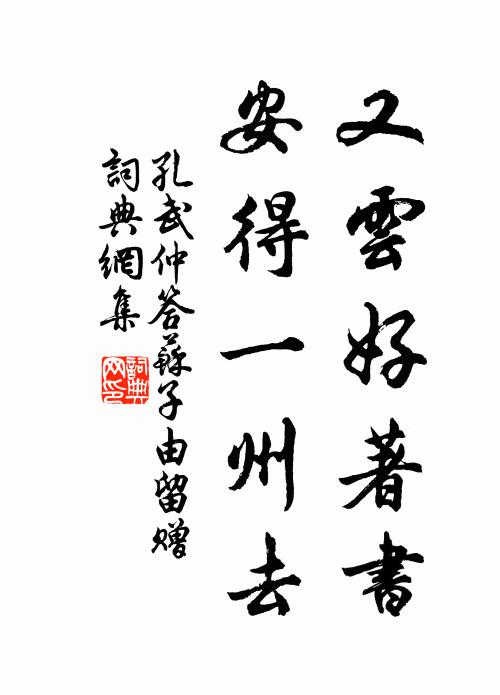 又雲好著書
安得一州去
孔武仲答蘇子由留贈
詞典網集
詞典網印